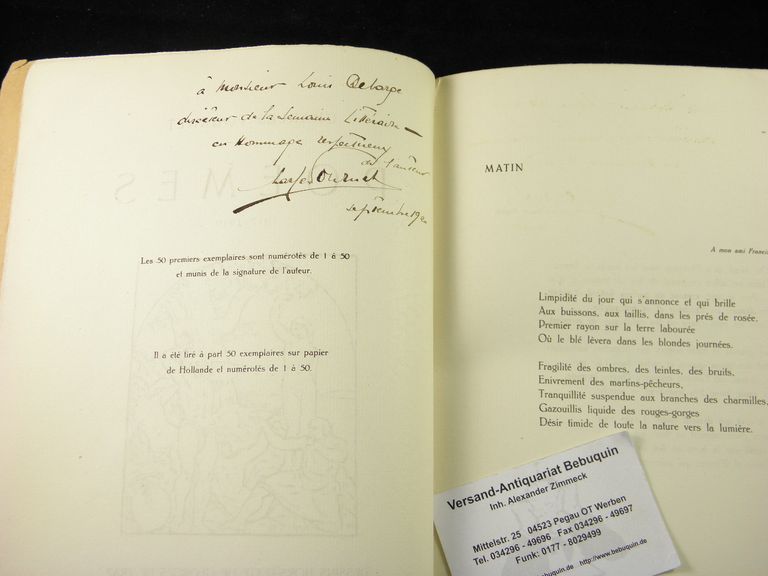 à Monsieur Louis Debarge
directeur de la Semaine Littéraire —
en Hommage respectueux
de l'auteur
Charles Ournet
septembre 1920
POÈMES
Les 50 premiers exemplaires sont numérotés de 1 à 50
et munis de la signature de l'auteur.
Il a été tiré à part 50 exemplaires sur papier
de Hollande et numérotés de 1 à 50.
MATIN
A mon ami Francis
Limpidité du jour qui s'annonce et qui brille
Aux buissons, aux taillis, dans les prés de rosée,
Premier rayon sur la terre labourée
Où le blé lèvera dans les blondes journées.
Fragilité des ombres, des teintes, des bruits,
Enivrement des martins-pêcheurs,
Tranquillité suspendue aux branches des charmilles,
Gazouillis liquide des rouges-gorges
Désir timide de toute la nature vers la lumière.
Versand-Antiquariat Bebuquin
Inh. Alexander Zimmeck
Mittelstr. 25 04523 Pegau OT Werben
Tel. 034296 - 49696 Fax 034296 - 49697
Funk: 0177 - 8029499
bebuquin.de http://www.bebuquin.de